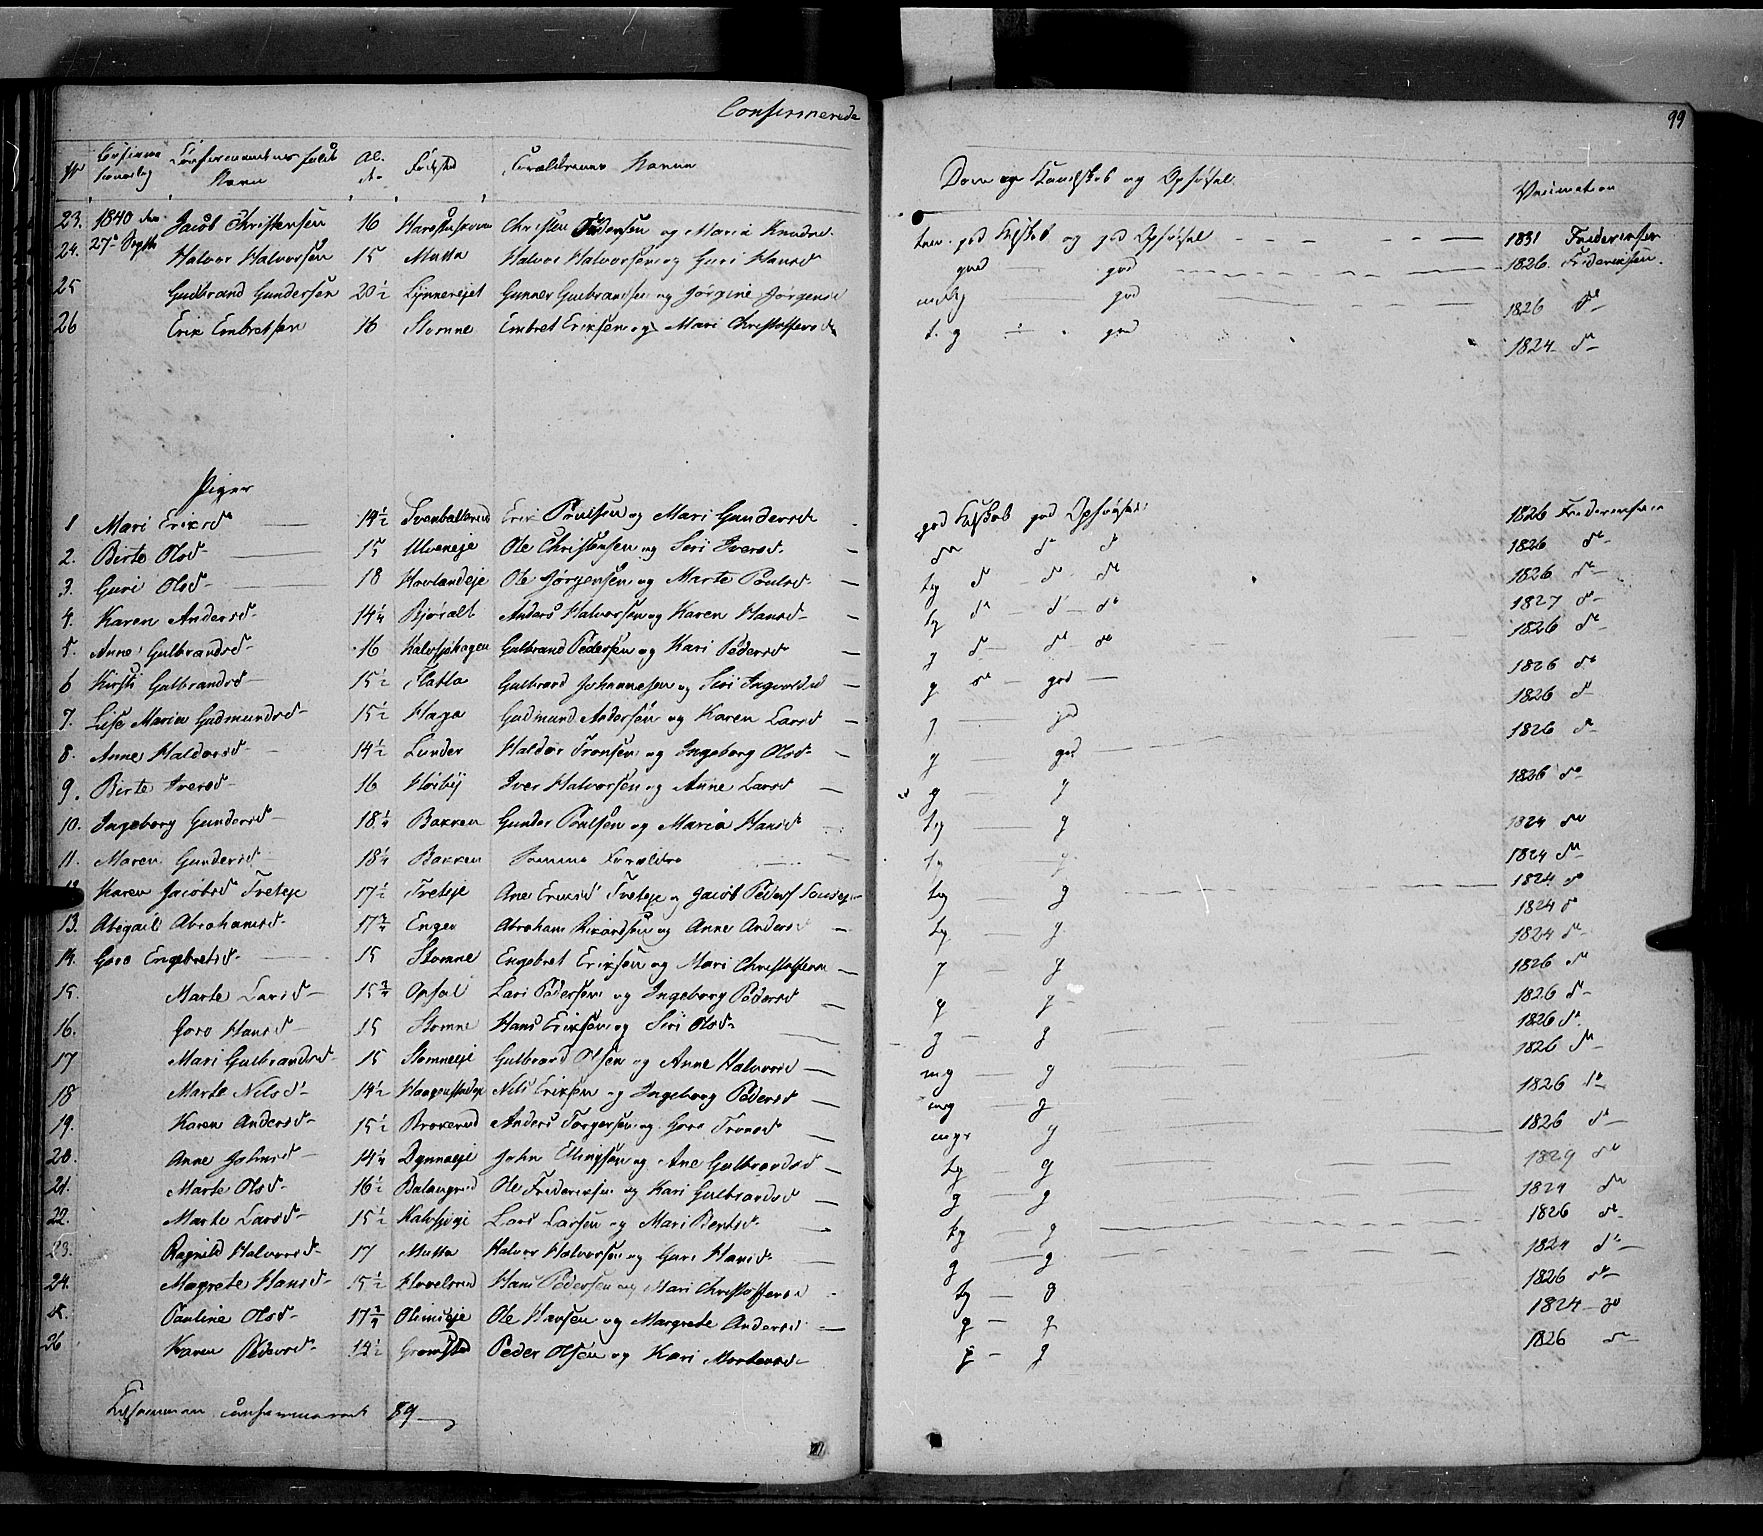 Confirmerede
99
Forældrenes Navne
Dom og Kundskab og Opførsel.
Vaccination
23. 1840 den Jacob Christensen 16 Christen Pedersen og Maria Knudsd. god Kskab og god Opførsel 1831 Frederiksen
24. 27de Septb Halvor Halvorsen 15 Mutta Halvor Halvorsen og Guri Hansd god god 1826. Frederiksen.
25 Gudbrand Gundersen 20½ Gunner Gulbrandsen og Jørgine Jørgensd god 1826 do
26 Erik Embretsen 16 Stomne Embret Eriksen og Mari Christoffersd t. g god 1824 do
Piger
1 Mari Eriksd 14½ Erik Poulsen og Mari Gundersd god Kskab god Opførsel 1826 Frederiksen
2. Birte Olsd 15 Ulveneje Ole Christensen og Siri Iversd do do do 1826 do
3. Guri Olsd 18 Hovlandeje Ole Jørgensen og Marte Poulsd tg do do do 1826 do
4. Karen Andersd 14¼ Bjøralt Anders Halvorsen og Karen Hansd tg do do do 1827 do
5. Anne Gulbrandsd 16 Kalvsjøhagen Gulbrand Pedersen og Kari Pedersd g do do do 1826 do
6 Kirsti Gulbrandsd 15½ Flatla Gulbrand Johannesen og Siri Ingvaldsd g do god 1826 do
7. Lise Maria Gudmundsd 15½ Haga Gudmund Andersen og Karen Larsd g god 1826 do
8. Anne Haldorsd 14½ Lunder Haldor Tronsen og Ingeborg Olsd g god 1826 do
9. Birte Iversd 16 Høiby Iver Halvorsen og Anne Larsd g g 1826 do
10. Ingeborg Gundersd 18¼ Bakken Gunder Poulsen og Maria Hansd tg g 1824 do
11. Maren Gundersd 18¼ Bakken Samme Forældre tg g 1824 do
Karen Jacobsd Tveteje 17½ Tveteje Ane Eriksd Tveteje og Jacob Peders tg g 1824 do
13. Abigael Abrahamsd 17¾ Enger Abraham Rikardsen og Anne Andersd tg g 1824 do
14. Goro Engebretsd 15 Stomne Engebret Eriksen og Mari Christoffersen g g 1824 do
15. Marte Larsd 15¾ Opsal Lars Pedersen og Ingeborg Pedersd g g 1826 do
16. Goro Hansd 15 Stomne Hans Eriksen og Siri Olsd g g 1826 do
17 Mari Gulbrandsd 15 Stomneeje Gulbrand Olsen og Anne Halvorsd mg g 1826 do
18 Marte Nilsd 14½ Nils Eriksen og Ingeborg Pedersd mg g 1826 do
19. Karen Andersd 15½ Brokerud Anders Torgersen og Goro Tronsd mg g 1826 do
20. Anne Johnsd 14¼ Dynneeje John Ellingsen og Ane Gulbrandsd tg g 1829 do
21. Marte Olsd 16½ Ole Frederiksen og Kari Gulbrandsd g g 1824 do
22. Marte Larsd 15½ Kalvsjøeje Lars Larsen og Mari Berthsd tg g 1826 do
23. Ragnild Halvorsd 17 Mutta Halvor Halvorsen og Guri Hansd g g 1824 do
24. Magrete Hansd 15½ Hans Pedersen og Mari Christoffersd tg g 1826 do
25. Pauline Olsd 17¾ Olimseje Ole Hansen og Margrete Andersd g g 1824 do
26 Karen Pedersd 14½ Peder Olsen og Kari Mortensd g g 1826 do
Tilsammen confirmerede 89